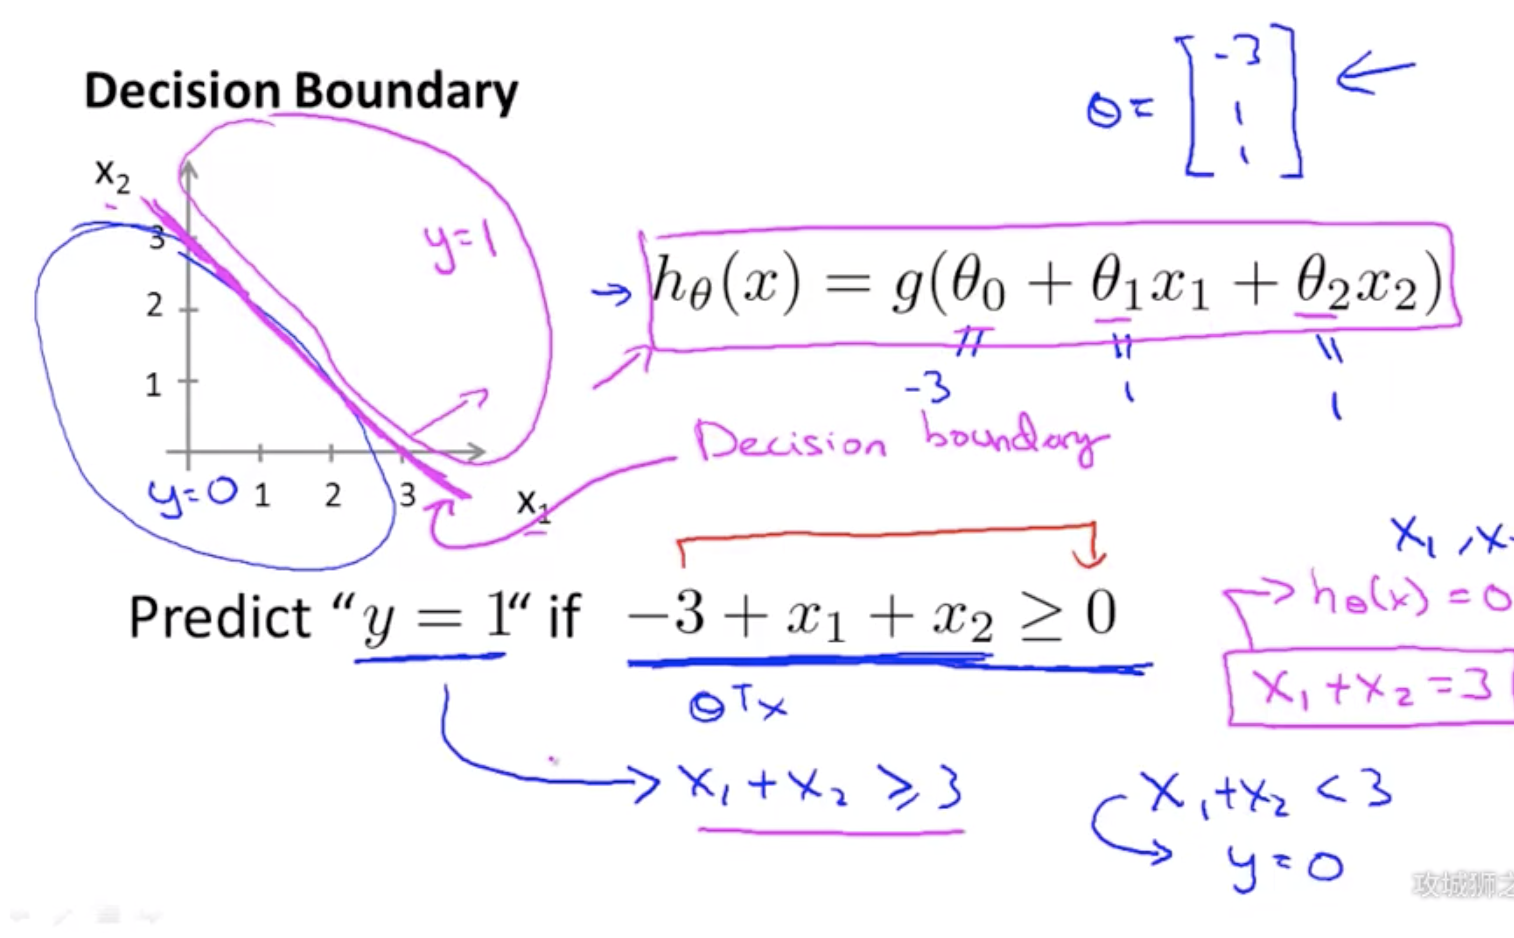 Decision Boundary
θ = [-3 1 1]
x₂
3
2
1
y=1
y=0 1 2 3
x₁
hθ(x) = g(θ₀ + θ₁x₁ + θ₂x₂)
-3 1 1
Decision boundary
x₁, x
hθ(x) = 0
Predict “y = 1“ if −3 + x₁ + x₂ ≥ 0
θᵀx
x₁ + x₂ = 3
x₁ + x₂ ≥ 3
x₁ + x₂ < 3
y = 0
攻城狮之